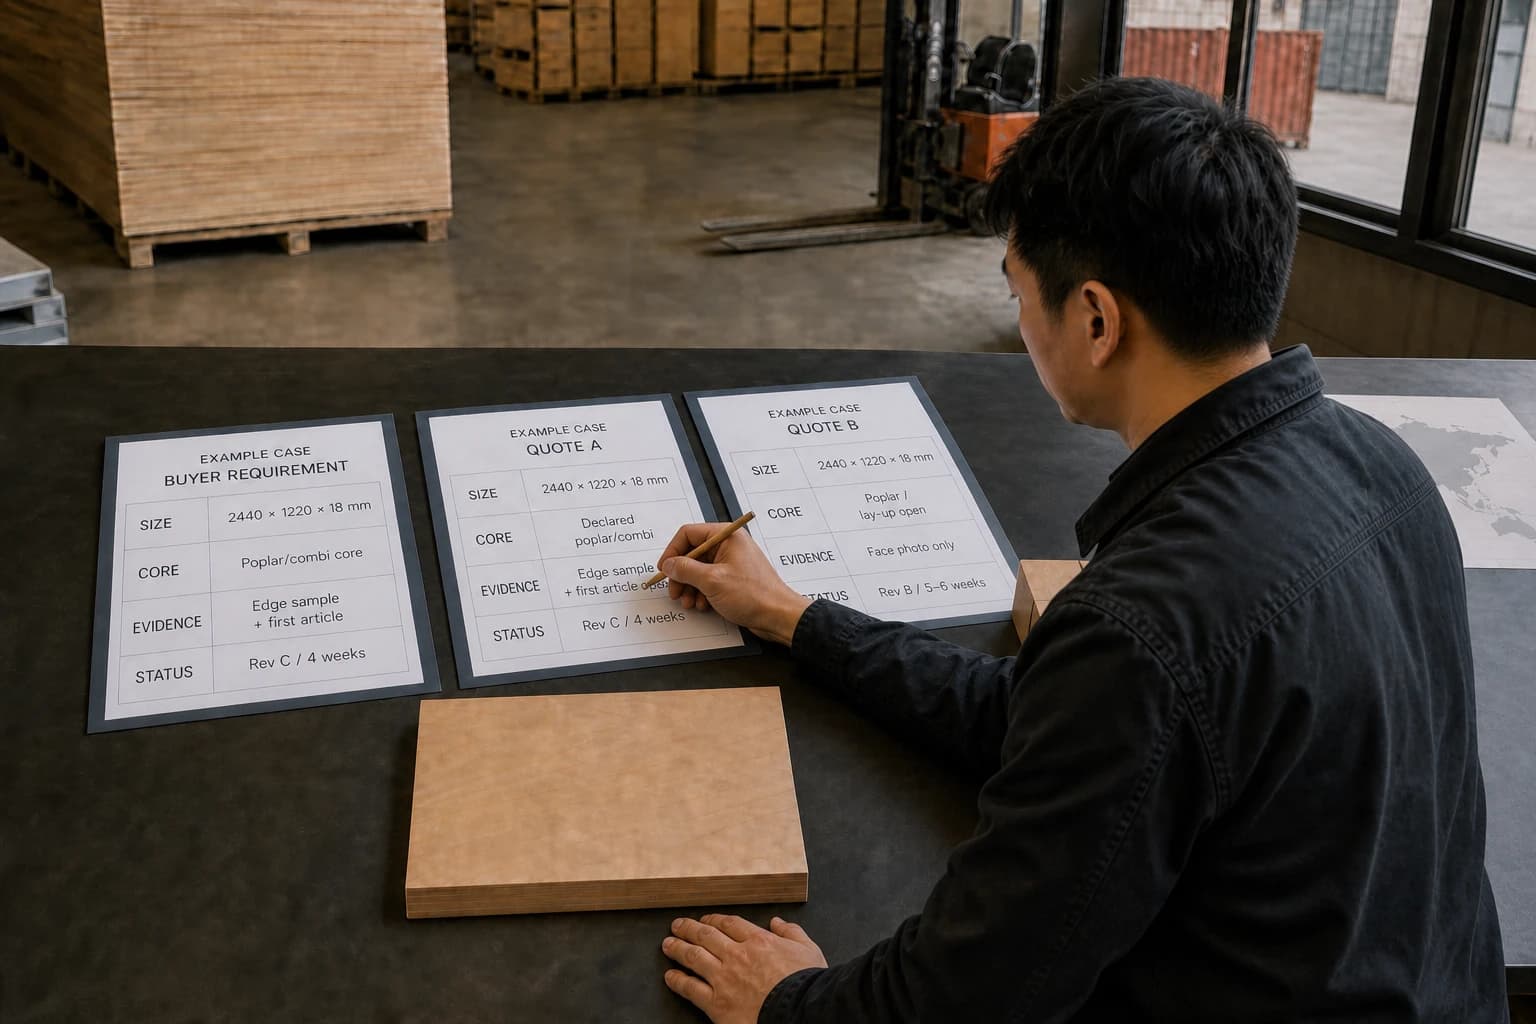 EXAMPLE CASE
BUYER REQUIREMENT
SIZE
2440 × 1220 × 18 mm
CORE
Poplar/combi core
EVIDENCE
Edge sample
+ first article
STATUS
Rev C / 4 weeks
EXAMPLE CASE
QUOTE A
SIZE
2440 × 1220 × 18 mm
CORE
Declared
poplar/combi
EVIDENCE
Edge sample
+ first article
STATUS
Rev C / 4 weeks
EXAMPLE CASE
QUOTE B
SIZE
2440 × 1220 × 18 mm
CORE
Poplar /
lay-up open
EVIDENCE
Face photo only
STATUS
Rev B / 5–6 weeks